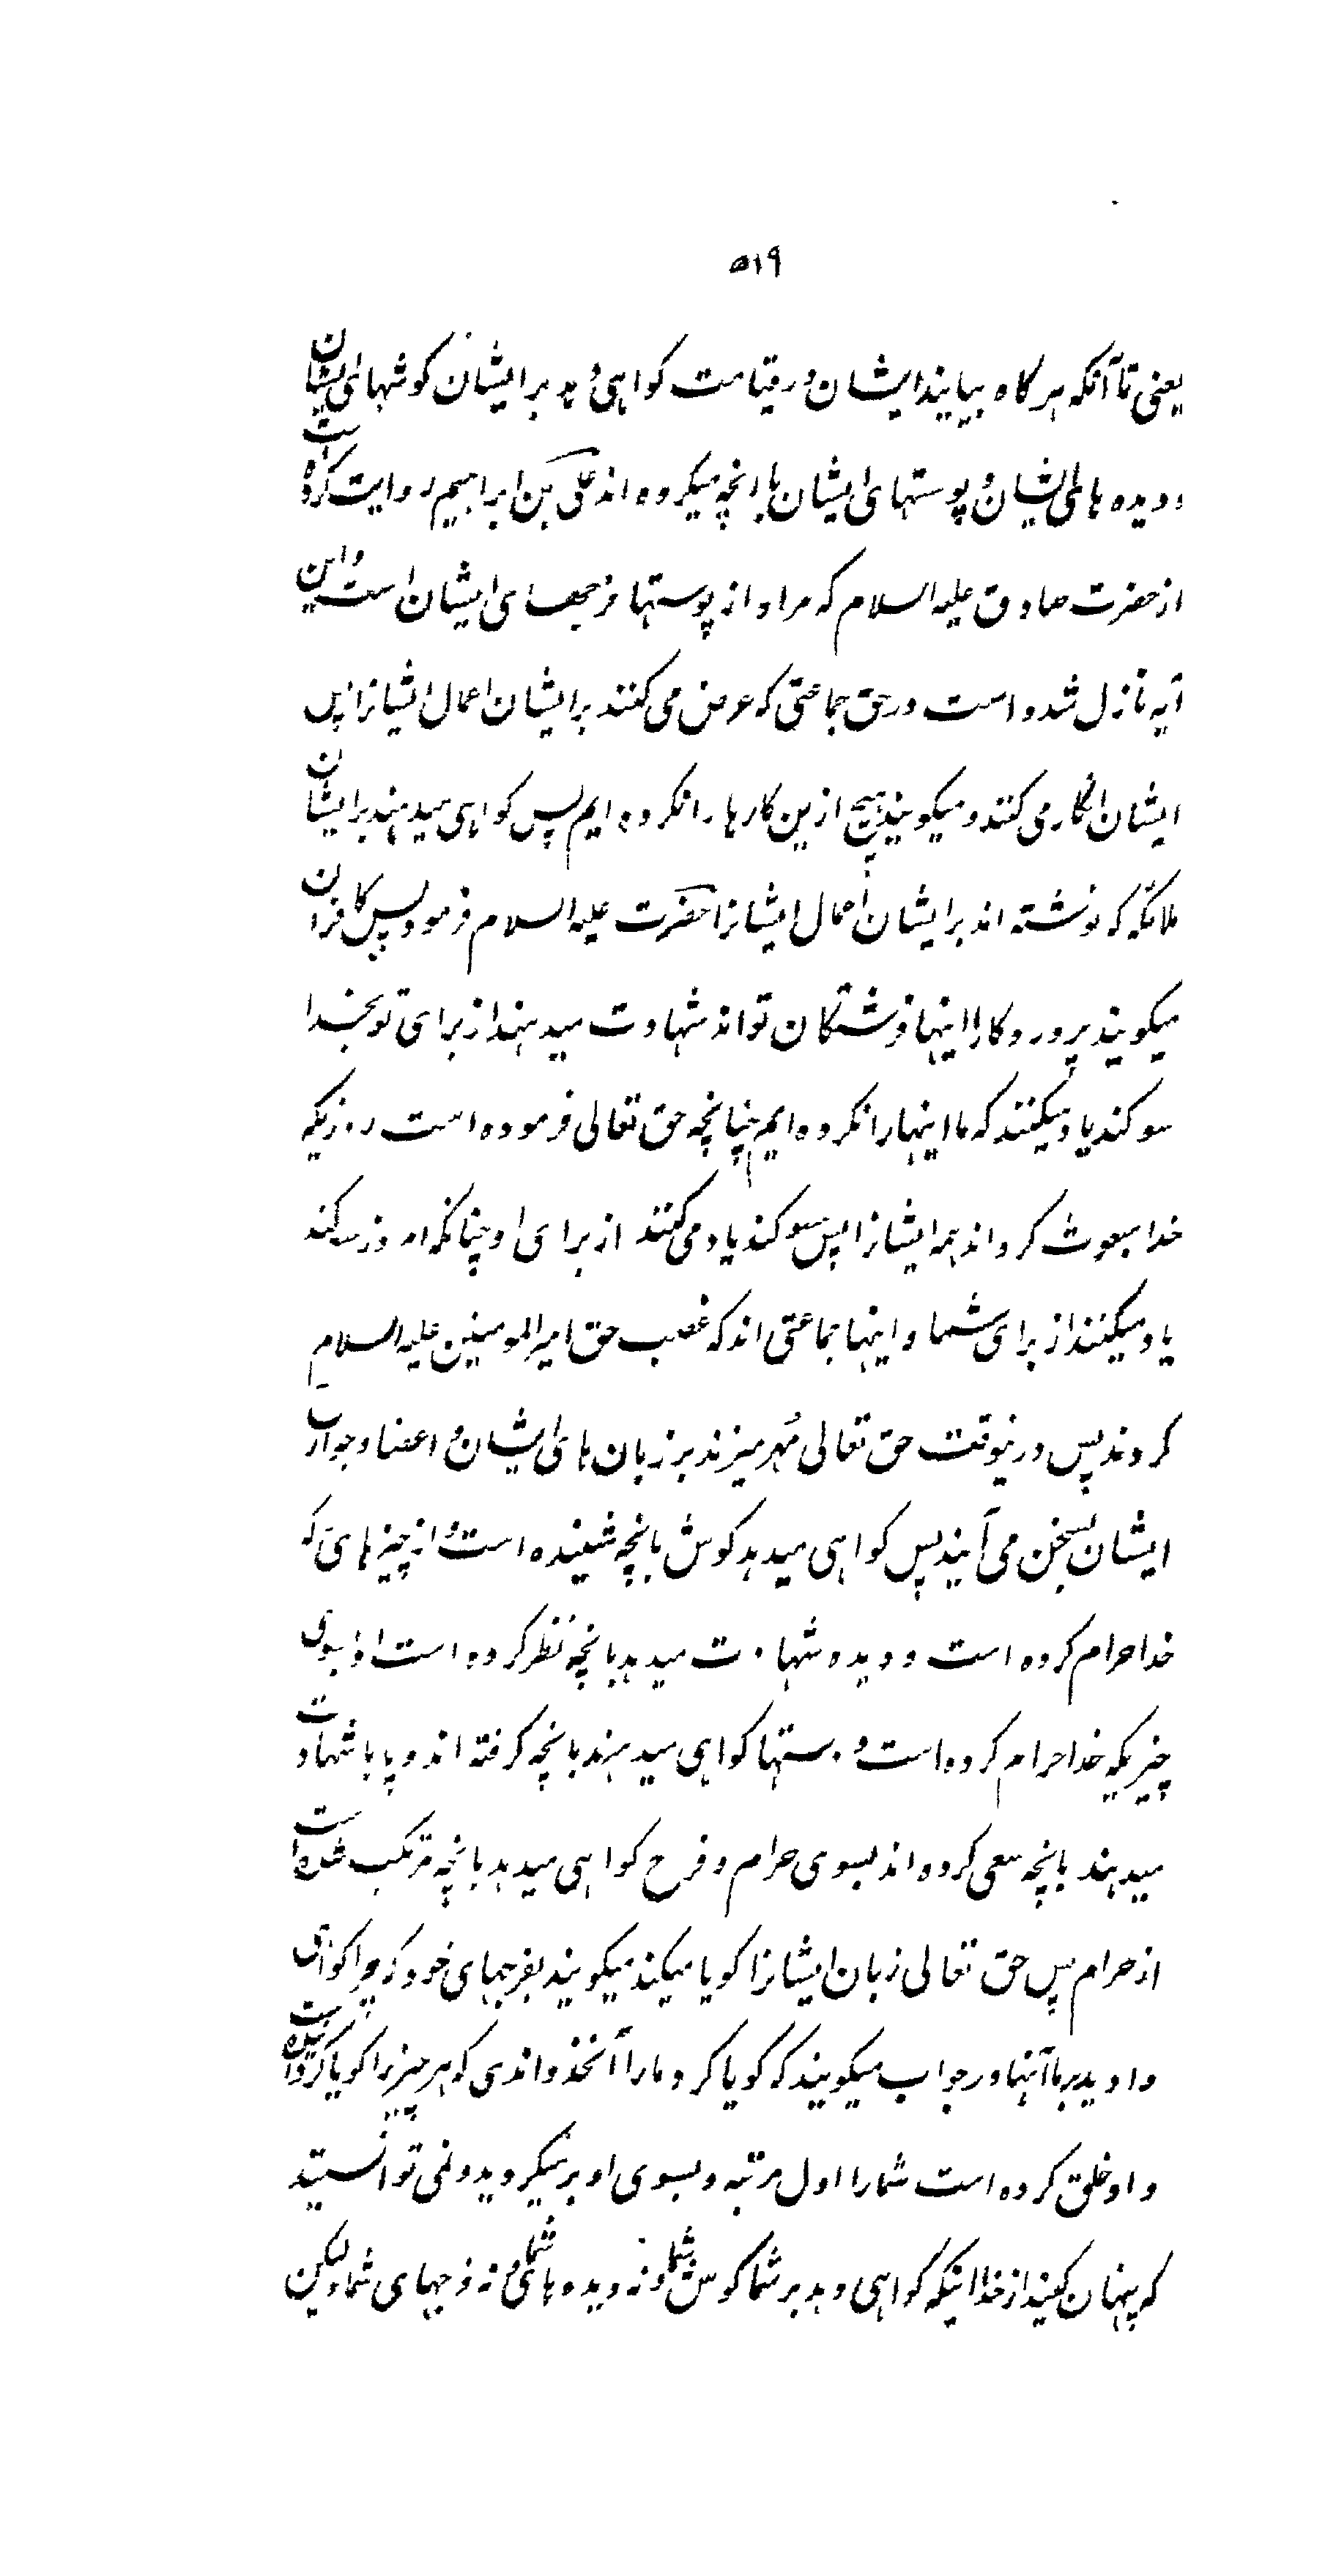 ۵۱۹
یعنی تا آنکه هر کاه بیایند ایشان در قیامت کواهی دهد بر ایشان کوشهای ایشان
و دیده هاء ایشان و پوستهای ایشان بانچه میکرده اند علی بن ابراهیم روایت کرده است
از حضرت صادق علیه السلام که مراد از پوستها فرجهای ایشان است و این
آیه نازل شده است در حق جماعتی که عرض می کنند بر ایشان اعمال ایشانرا پس
ایشان انکار می کنند و میکویند هیچ ازین کارها را نکرده ایم پس کواهی میدهند بر ایشان
ملائکه که نوشته اند بر ایشان اعمال ایشانرا حضرت علیه السلام فرمود پس کافران
میکویند پروردکارا اینها فرشتکان تواند شهادت میدهند از برای تو بخدا
سوکند یاد میکنند که ما اینها را نکرده ایم چنانچه حق تعالی فرموده است روزیکه
خدا مبعوث کرداند همه ایشانرا پس سوکند یاد می کنند از برای او چنانکه امروز سوکند
یاد میکنند از برای شما و اینها جماعتی اند که غصب حق امیر المومنین علیه السلام
کردند پس درینوقت حق تعالی مُهر میزند بر زبان های ایشان و اعضا و جوارح
ایشان بسخن می آیند پس کواهی میدهد کوش بانچه شنیده است از چیز های که
خدا حرام کرده است و دیده شهادت میدهد بانچه نظر کرده است او بسوی
چیزیکه خدا حرام کرده است و دستها کواهی میدهند بانچه کرفته اند و پا با شهادت
میدهند بانچه سعی کرده اند بسوی حرام و فرج کواهی میدهد بانچه مرتکب شده است
از حرام پس حق تعالی زبان ایشانرا کویا میکند میکویند بفرجهای خود که چرا کواهی
دادید بر ما آنها در جواب میکویند که کویا کرد ما را آنخداوندی که هر چیز را کویا کرده است
و او خلق کرده است شما را اول مرتبه و بسوی او بر میکردید و نمی توانستید
که پنهان کنید از خدا اینکه کواهی دهد بر شما کوش شما و نه دیده های شما و نه فرجهای شما و لیکن